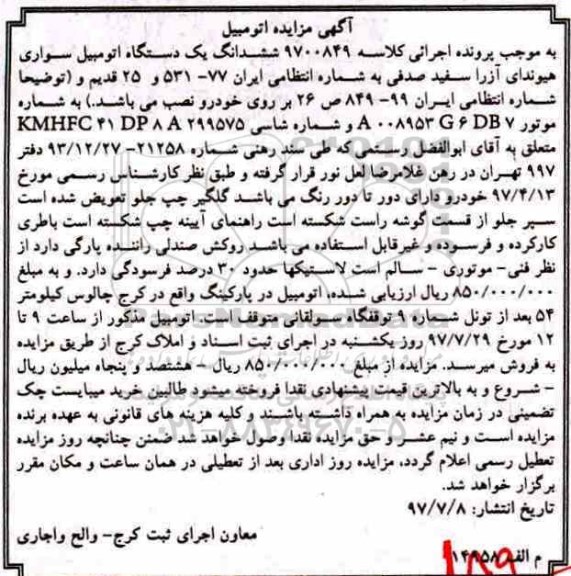 آگهی مزایده اتومبیل
به موجب پرونده اجرائی کلاسه ۹۷۰۰۸۴۹ ششدانگ یک دستگاه اتومبیل سواری
هیوندای آزرا سفید صدفی به شماره انتظامی ایران ۷۷- ۵۳۱ و ۲۵ قدیم و (توضیحا
شماره انتظامی ایران ۹۹- ۸۴۹ ص ۲۶ بر روی خودرو نصب می باشد.) به شماره
موتور A ۰۰۸۹۵۳ G ۶ DB ۷ و شماره شاسی KMHFC ۴۱ DP ۸ A ۲۹۹۵۷۵
متعلق به آقای ابوالفضل رستمی که طی سند رهنی شماره ۲۱۲۵۸- ۹۳/۱۲/۲۷ دفتر
۹۹۷ تهران در رهن غلامرضا لعل نور قرار گرفته و طبق نظر کارشناس رسمی مورخ
۹۷/۴/۱۳ خودرو دارای دور تا دور رنگ می باشد گلگیر چپ جلو تعویض شده است
سپر جلو از قسمت گوشه راست شکسته است راهنمای آیینه چپ شکسته است باطری
کارکرده و فرسوده و غیرقابل استفاده می باشد روکش صندلی راننده پارگی دارد از
نظر فنی- موتوری - سالم است لاستیکها حدود ۳۰ درصد فرسودگی دارد. و به مبلغ
۸۵۰/۰۰۰/۰۰۰ ریال ارزیابی شده، اتومبیل در پارکینگ واقع در کرج چالوس کیلومتر
۵۴ بعد از تونل شماره ۹ توقفگاه سولقانی متوقف است. اتومبیل مذکور از ساعت ۹ تا
۱۲ مورخ ۹۷/۷/۲۹ روز یکشنبه در اجرای ثبت اسناد و املاک کرج از طریق مزایده
به فروش میرسد. مزایده از مبلغ ۸۵۰/۰۰۰/۰۰۰ ریال - هشتصد و پنجاه میلیون ریال
- شروع و به بالاترین قیمت پیشنهادی نقدا فروخته میشود طالبین خرید میبایست چک
تضمینی در زمان مزایده به همراه داشته باشند و کلیه هزینه های قانونی به عهده برنده
مزایده است و نیم عشر و حق مزایده نقدا وصول خواهد شد ضمن چنانچه روز مزایده
تعطیل رسمی اعلام گردد، مزایده روز اداری بعد از تعطیلی در همان ساعت و مکان مقرر
برگزار خواهد شد.
تاریخ انتشار: ۹۷/۷/۸
معاون اجرای ثبت کرج- والح واجاری
م الف ۱۴۹۵۸
۰۲۱-۸۸۳۴۹۶۷۰-۵